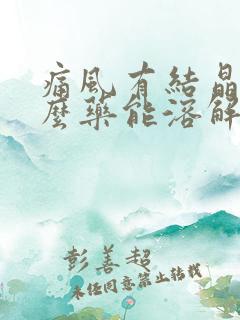 痛风有結晶
麼藥能溶解
彭善超
未经同意禁止转载